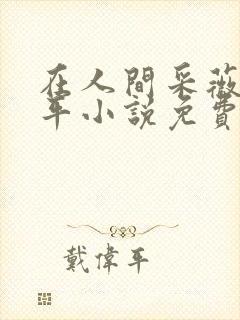 在人間采薇
年小說免費
戴偉平